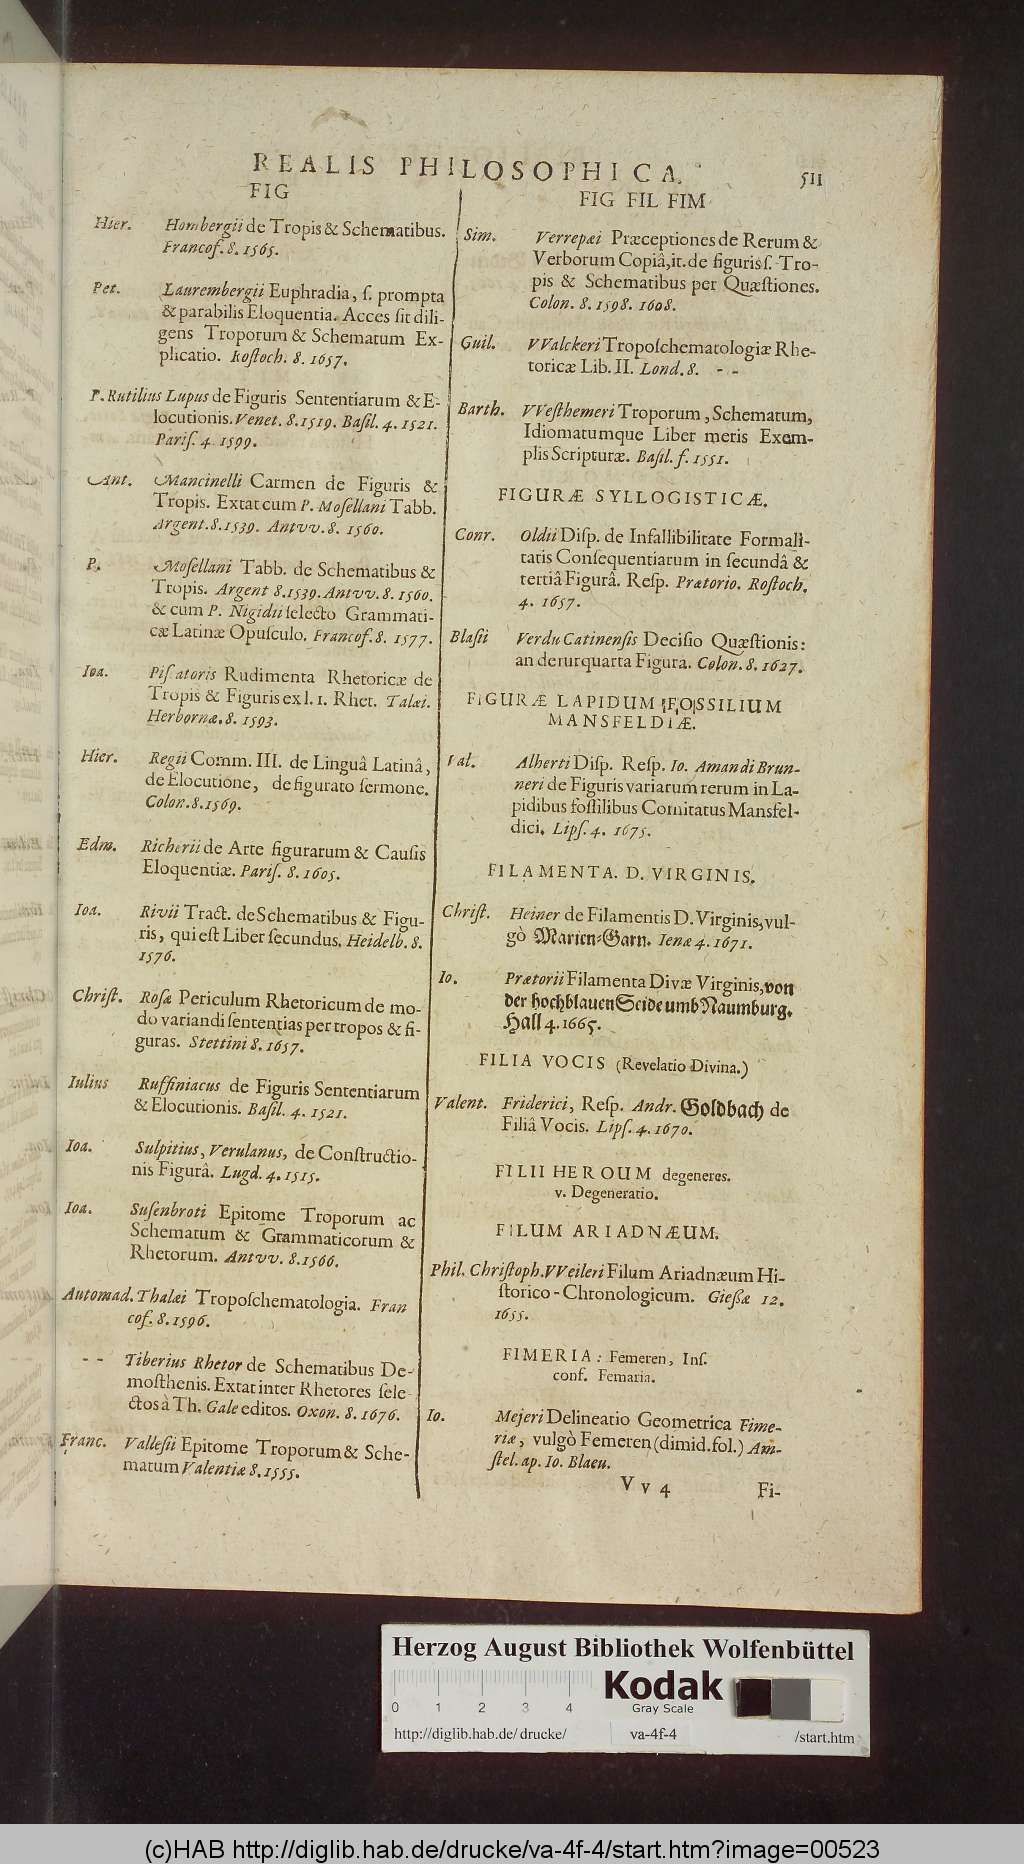 REALIS PHILOSOPHICA.
511
FIG
Hier. Hombergii de Tropis & Schematibus.
Francof. 8. 1565.
Pet. Laurembergii Euphradia, ſ. prompta
& parabilis Eloquentia. Acces ſit dili-
gens Troporum & Schematum Ex-
plicatio. Roſtoch. 8. 1657.
P. Rutilius Lupus de Figuris Sententiarum & E-
locutionis. Venet. 8. 1519. Baſil. 4. 1521.
Pariſ. 4. 1599.
Ant. Mancinelli Carmen de Figuris &
Tropis. Extat cum P. Moſellani Tabb.
Argent. 8. 1539. Antvv. 8. 1560.
P. Moſellani Tabb. de Schematibus &
Tropis. Argent 8. 1539. Antvv. 8. 1560.
& cum P. Nigidii ſelecto Grammati-
cæ Latinæ Opuſculo. Francof. 8. 1577.
Ioa. Piſcatoris Rudimenta Rhetoricæ de
Tropis & Figuris ex l. 1. Rhet. Talæi.
Herbornæ. 8. 1593.
Hier. Regii Comm. III. de Linguâ Latinâ,
de Elocutione, de figurato ſermone.
Colon. 8. 1569.
Edm. Richerii de Arte figurarum & Cauſis
Eloquentiæ. Pariſ. 8. 1605.
Ioa. Rivii Tract. de Schematibus & Figu-
ris, qui eſt Liber ſecundus. Heidelb. 8.
1576.
Chriſt. Roſæ Periculum Rhetoricum de mo-
do variandi ſententias per tropos & fi-
guras. Stettini 8. 1657.
Iulius Ruffiniacus de Figuris Sententiarum
& Elocutionis. Baſil. 4. 1521.
Ioa. Sulpitius, Verulanus, de Conſtructio-
nis Figurâ. Lugd. 4. 1515.
Ioa. Suſenbroti Epitome Troporum ac
Schematum & Grammaticorum &
Rhetorum. Antvv. 8. 1566.
Automad. Thalæi Tropoſchematologia. Fran
cof. 8. 1596.
- - Tiberius Rhetor de Schematibus De-
moſthenis. Extat inter Rhetores ſele-
ctos à Th. Gale editos. Oxon. 8. 1676.
Franc. Valleſii Epitome Troporum & Sche-
matum Valentiæ 8. 1555.
FIG FIL FIM
Sim. Verrepæi Præceptiones de Rerum &
Verborum Copiâ, it. de figuris ſ. Tro-
pis & Schematibus per Quæſtiones.
Colon. 8. 1598. 1608.
Guil. VValckeri Tropoſchematologiæ Rhe-
toricæ Lib. II. Lond. 8. - -
Barth. VVeſthemeri Troporum, Schematum,
Idiomatumque Liber meris Exem-
plis Scripturæ. Baſil. f. 1551.
FIGURÆ SYLLOGISTICÆ.
Conr. Oldii Diſp. de Infallibilitate Formali-
tatis Conſequentiarum in ſecundâ &
tertiâ Figurâ. Reſp. Prætorio. Roſtoch.
4. 1657.
Blaſii Verdu Catinenſis Deciſio Quæſtionis:
an detur quarta Figura. Colon. 8. 1627.
FIGURÆ LAPIDUM FOSSILIUM
MANSFELDIÆ.
Val. Alberti Diſp. Reſp. Io. Amandi Brun-
neri de Figuris variarum rerum in La-
pidibus foſſilibus Comitatus Mansfel-
dici. Lipſ. 4. 1675.
FILAMENTA. D. VIRGINIS.
Chriſt. Heiner de Filamentis D. Virginis, vul-
gò Marien-Garn. Ienæ 4. 1671.
Io. Prætorii Filamenta Divæ Virginis, von
der hochblauen Seide umb Naumburg.
Hall 4. 1665.
FILIA VOCIS (Revelatio Divina.)
Valent. Friderici, Reſp. Andr. Goldbach de
Filiâ Vocis. Lipſ. 4. 1670.
FILII HEROUM degeneres.
v. Degeneratio.
FILUM ARIADNÆUM.
Phil. Chriſtoph. VVeileri Filum Ariadnæum Hi-
ſtorico-Chronologicum. Gießæ 12.
1655.
FIMERIA: Femeren, Inſ.
conf. Femaria.
Io. Mejeri Delineatio Geometrica Fime-
riæ, vulgò Femeren (dimid. fol.) Am-
ſtel. ap. Io. Blaeu.
V v 4
Fi-
Herzog August Bibliothek Wolfenbüttel
0 1 2 3 4
Kodak
Gray Scale
http://diglib.hab.de/ drucke/ va-4f-4 /start.htm
(c)HAB http://diglib.hab.de/drucke/va-4f-4/start.htm?image=00523